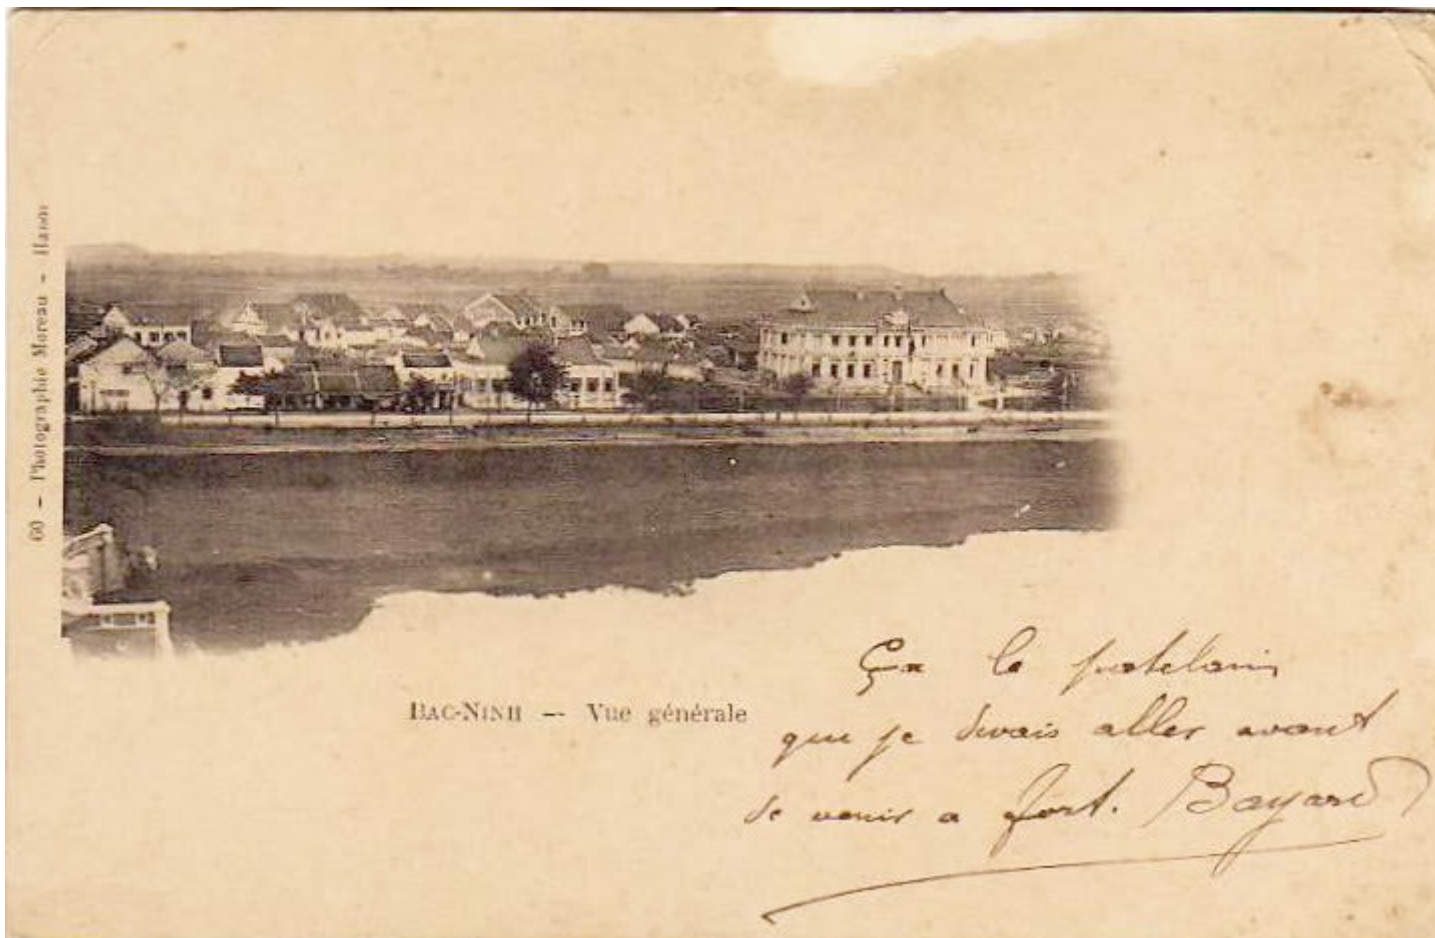 60 — Photographie Moreau — Hanoi
BAC-NINH — Vue générale
Ça le patelain
que je devais aller avant
de venir a fort. Bayard